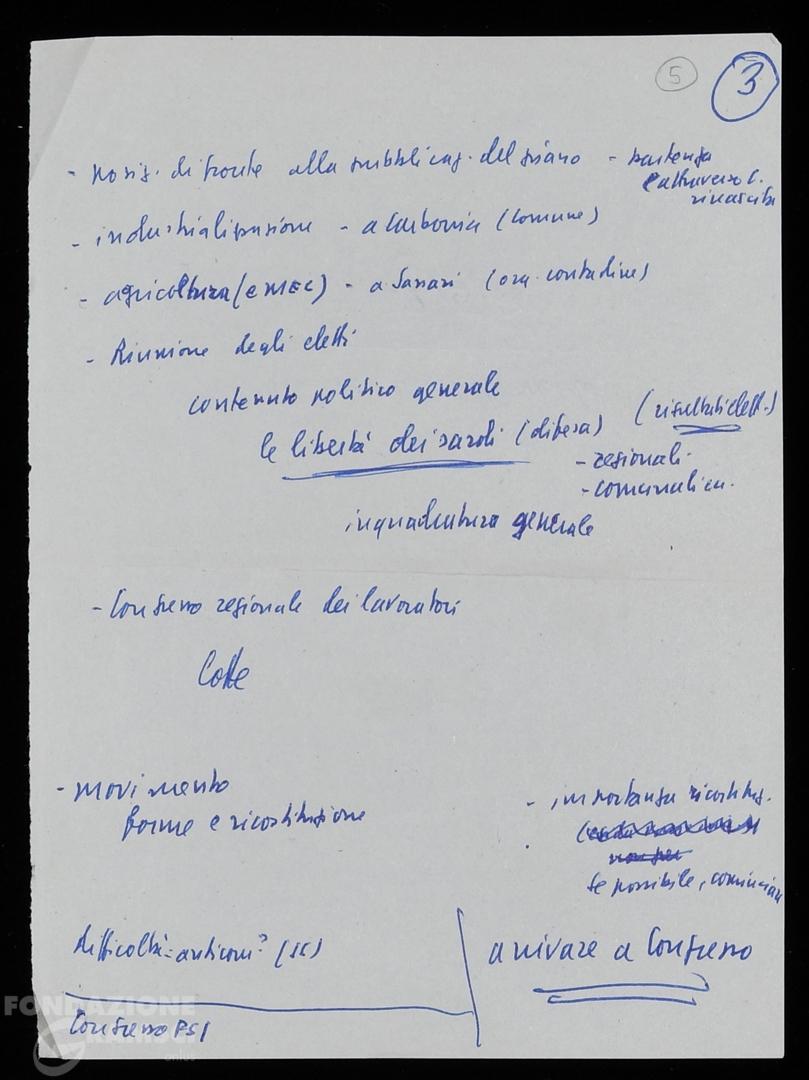 5 3
- posiz. di fronte alla pubblicaz. del piano - partenza
e attraverso C.
rinascita
- industrializzazione - a Carbonia (Comune)
- agricoltura (e MEC) - a Sassari (org. contadine)
- Riunione degli eletti
contenuto politico generale
le libertà dei sardi (difesa) (risultati elett.)
- regionali
- comunali
inquadratura generale
- Congresso regionale dei lavoratori
Lotte
- movimento
forme e ricostituzione
- importanza ricostituz.
se possibile, cominciare
difficoltà = anticom? (
arrivare a Congresso
Congresso PSI
FONDAZIONE
GRAMSCI
onlus